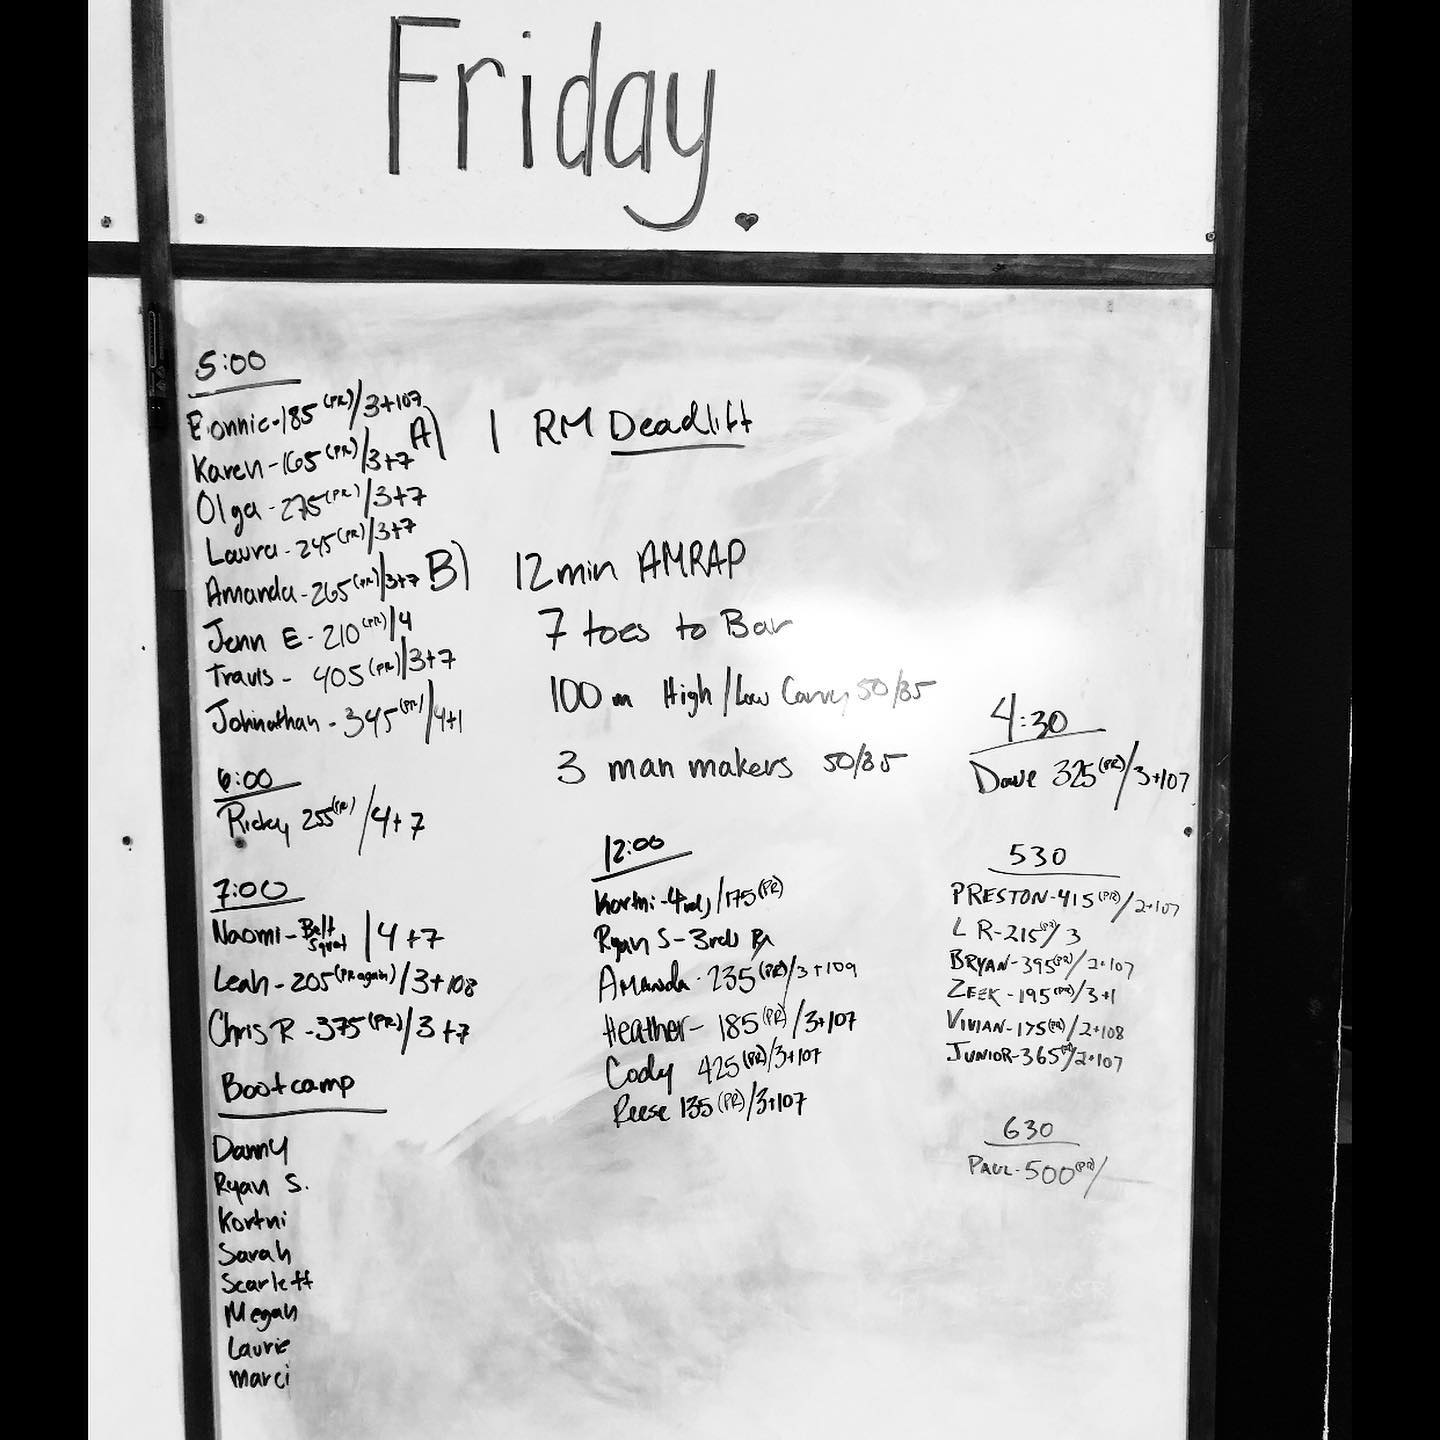 Friday
5:00
Bonnie-185 (PR)/3+107
Karen-165 (PR)/3+7
Olga-275 (PR)/3+7
Laura-245 (PR)/3+7
Amanda-265 (PR)/3+7
Jenn E-210 (PR)/4
Travis-405 (PR)/3+7
Johnathan-345 (PR)/4+1
6:00
Ricky 255 (PR)/4+7
7:00
Naomi-Belt Squat/4+7
Leah-205 (PR again)/3+108
Chris R-375 (PR)/3+7
Bootcamp
Danny
Ryan S.
Kortni
Sarah
Scarlett
Megan
Laurie
Marci
A) 1 RM Deadlift
B) 12min AMRAP
7 toes to Bar
100m High/Low Carry 50/35
3 man makers 50/35
12:00
Kortni-4rds/175 (PR)
Ryan S-3rds Rx
Amanda-235 (PR)/3+109
Heather-185 (PR)/3+107
Cody 425 (PR)/3+107
Reese 135 (PR)/3+107
4:30
Dave 325 (PR)/3+107
530
PRESTON-415 (PR)/2+107
L R-215 (PR)/3
BRYAN-395 (PR)/2+107
ZEEK-195 (PR)/3+1
VIVIAN-175 (PR)/2+108
JUNIOR-365 (PR)/2+107
630
PAUL-500 (PR)/